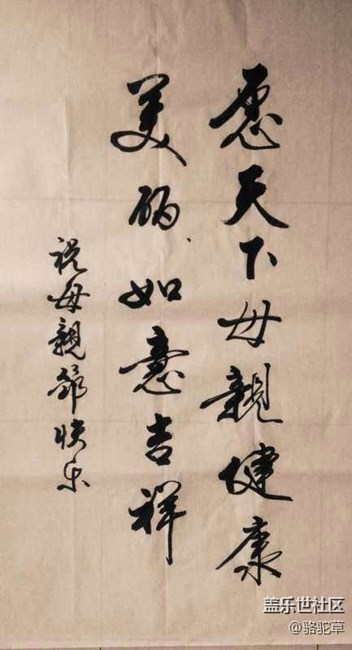 愿天下母親健康
美丽如意吉祥
祝母親節快乐
盖乐世社区
@骆驼草